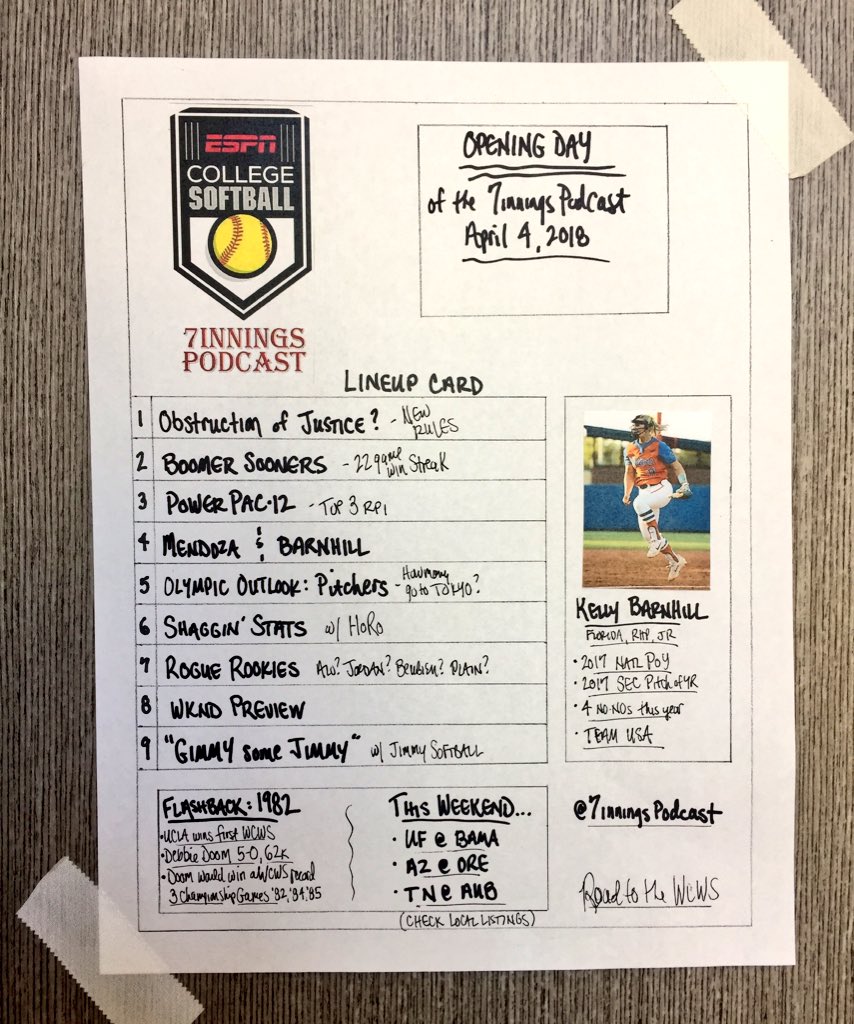 ESPN
COLLEGE
SOFTBALL
7INNINGS
PODCAST
OPENING DAY
of the 7innings Podcast
April 4, 2018
LINEUP CARD
1 Obstruction of Justice? - NEW RULES
2 BOOMER SOONERS - 22 game win Streak
3 POWER PAC-12 - TOP 3 RPI
4 MENDOZA & BARNHILL
5 OLYMPIC OUTLOOK: Pitchers - How many go to TOKYO?
6 SHAGGIN' STATS w/ HoRo
7 ROGUE ROOKIES ALO? JORDAN? BENBISH? PLAIN?
8 WKND PREVIEW
9 "GIMMY some JIMMY" w/ JIMMY SOFTBALL
KELLY BARNHILL
FLORIDA, RHP, JR
• 2017 NATL POY
• 2017 SEC Pitch of YR
• 4 NO-NOs this year
• TEAM USA
FLASHBACK: 1982
• UCLA wins first WCWS
• Debbie Doom 5-0, 62K
• Doom would win a WCWS record
3 Championship Games '82, '84, '85
THIS WEEKEND...
• UF @ BAMA
• AZ @ ORE
• TN @ AUB
(CHECK LOCAL LISTINGS)
@7inningsPodcast
Road to the WCWS